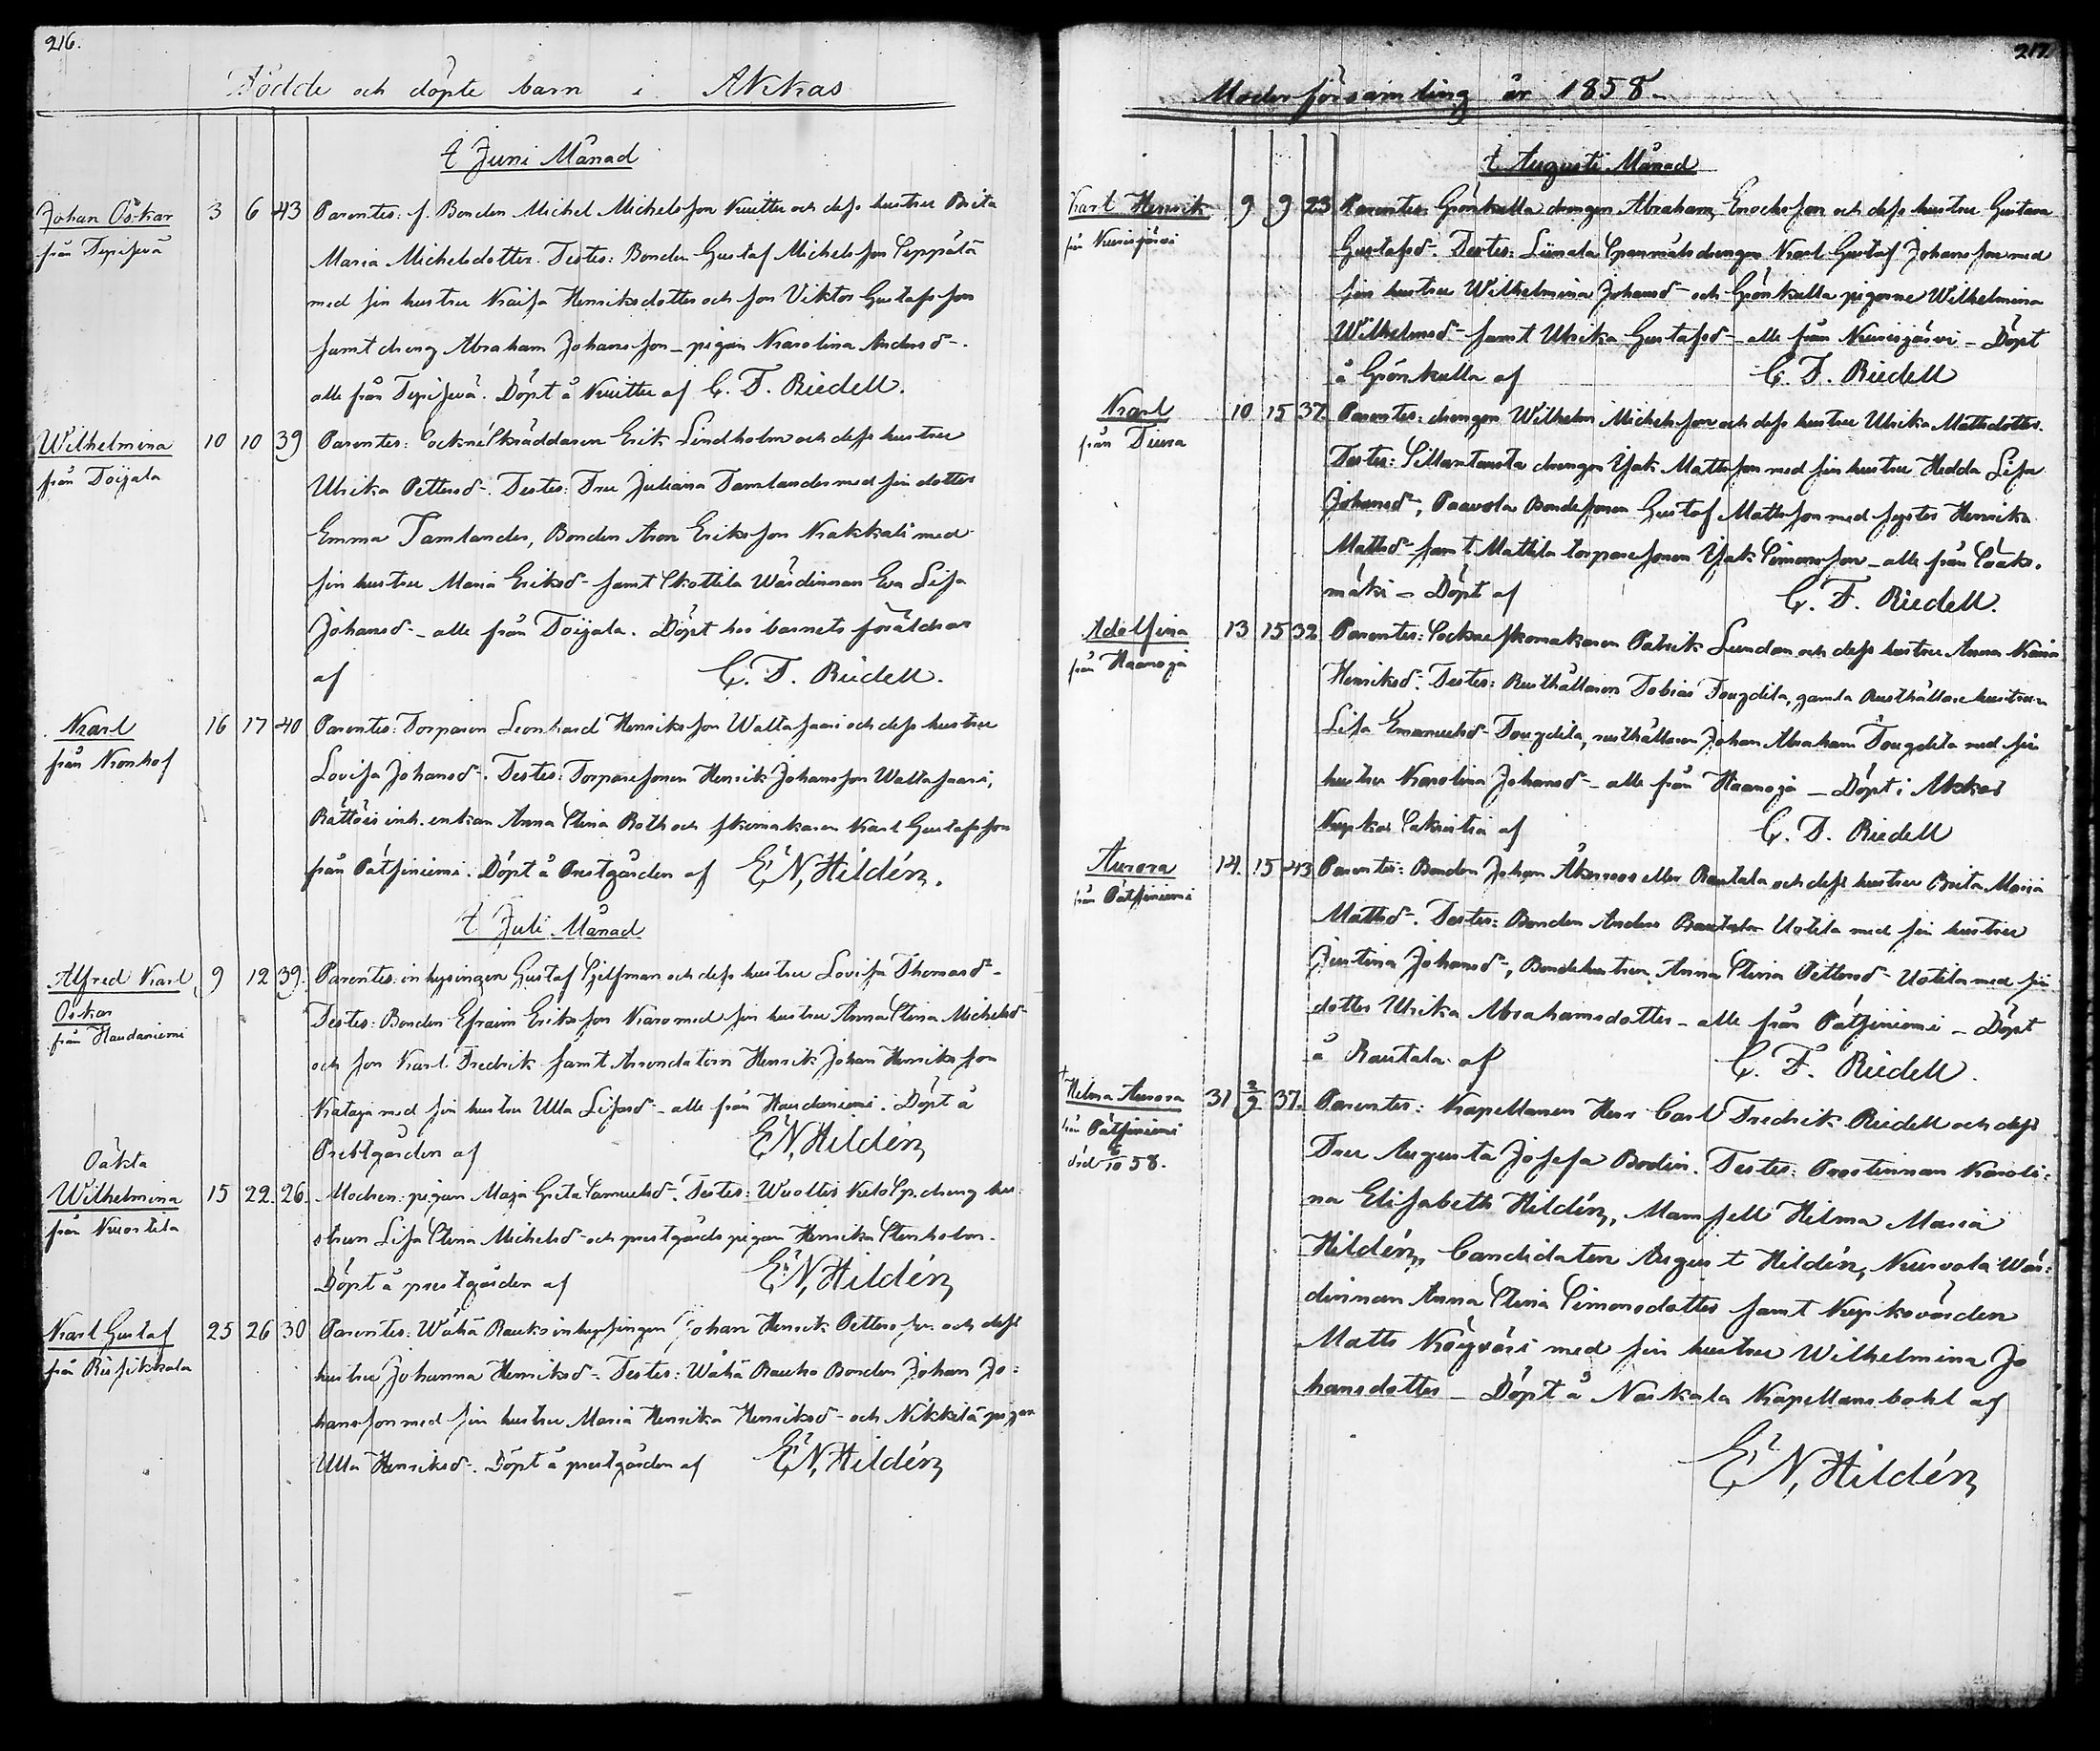 216.
Födde och döpte barn i Akkas
i Juni Månad
Johan Oskar 3 6 43 Parentes: f. Bonden Michel Michelsson Kuitti och dess hustru Brita
från Terisjerå Maria Michelsdotter. Testes: Bonden Gustaf Michelsson Seppälä
med sin hustru Kaisa Henriksdotter och son Viktor Gustafsson
samt dreng Abraham Johansson – pigan Karolina Andersd –.
alle från Döpt å Kuitti af C. F. Riedell.
Wilhelmina 10 10 39 Parentes: Sockne Skräddaren Erik Lindholm och dess hustru
från Toijala Ulrika Pettersd –. Testes: Fru Juliana Tamlander med sin dotter
Emma Tamlander, Bonden Aron Eriksson Krakkali med
sin hustru Maria Eriksd – samt Skottila Wärdinnan Eva Lisa
Johansd – alle från Toijala. Döpt hos barnets föräldrar
af C. F. Riedell.
Karl 16 17 40 Parentes: Torparen Leonhard Henriksson Waltasaari och dess hustru
från Kronhof Lovisa Johansd –. Testes: Torparesonen Henrik Johansson Waltasaari,
Rättöis inh. enkan Anna Stina Roth och skomakaren Karl Gustafsson
från Pätsiniemi. Döpt å Prestgården af E. N. Hildén.
i Juli Månad
Alfred Karl 9 12 39. Parentes: inhysingen Gustaf och dess hustru Lovisa Thomasd –
Oskar Testes: Bonden Efraim Eriksson Karo med sin hustru Anna Stina Michelsd –
från Haudaniemi och son Karl Fredrik samt Arrendatorn Henrik Johan Henriksson
Kataja med sin hustru Ulla Lisasd – alle från Haudaniemi. Döpt å
Prestgården af E. N. Hildén
Oäkta
Wilhelmina 15 22. 26. Modren: pigan Maja Greta Samuelsd –. Testes: Sp. dreng hu-
från Kuortila strun Lisa Stina Michelsd – och prestgårds pigan Henrika Stenholm.
Döpt å prestgården af E. N. Hildén
Karl Gustaf 25 26 30 Parentes: Wähä Rauko inhysingen Johan Henrik Pettersson och dess
från Risikkala hustru Johanna Henriksd –. Testes: Wähä Rauko Bonden Johan Jo=
hansson med sin hustru Maria Henrika Henriksd – och Nikkilä pigan
Ulla Henriksd –. Döpt å prestgården af E. N. Hildén
217.
Moderförsamling år 1858.
i Augusti Månad
Karl Henrik 9 9 23 Parentes: Grönkulla drengen Abraham Enochsson och dess hustru Gustava
från Kurisjärvi Gustafsd –. Testes: Spanmåls drengen Karl Gustaf Johansson med
sin hustru Wilhelmina Johansd – och Grönkulla pigorne Wilhelmina
Wilhelmsd – samt Ulrika Gustafsd – alle från Kurisjärvi – Döpt
å Grönkulla af C. F. Riedell
Karl 10 15 37. Parentes: drengen Wilhelm Michelsson och dess hustru Ulrika Mattsdotter.
från Testes: Sillantausta drengen Isak Mattsson med sin hustru Hedda Lisa
Johansd –, Paavola Bondesonen Gustaf Mattsson med syster Henrika
Mattsd – samt Mattila torparesonen Isak Simonsson – alle från Sääks-
mäki – Döpt af C. F. Riedell.
Adolfina 13 15 32 Parentes: Sockneskomakaren Patrik Lundan och dess hustru Anna Maria
från Haanoja Henriksd –. Testes: Rusthållaren Tobias Tougdila, gamla Rusthållarehustrun
Lisa Emanuelsd – Tougdila, rusthållaren Johan Abraham Tougdila med sin
hustru Karolina Johansd – alle från Haanoja – Döpt i Akkas
Kyrkas Sakristia af C. F. Riedell
Aurora 14. 15 43 Parentes: Bonden Johan eller Rautala och dess hustru Brita Maria
från Pätsiniemi Mattsd –. Testes: Bonden Anders Uotila med sin hustru
Justina Johansd –, Bondehustrun Anna Stina Pettersd – Uotila med sin
dotter Ulrika Abrahamsdotter – alle från Pätsiniemi – Döpt
å Rautala af C. F. Riedell.
† Helma Aurora 31 2/9 37. Parentes: Kapellanen Herr Carl Fredrik Riedell och dess
från Pätsiniemi Fru Augusta Josefa Bodin. Testes: Prostinnan Karoli=
död 6/10 58. na Elisabeth Hildén, Mamsell Hilma Maria
Hildén, Candidaten August Hildén, Kurvola Wär=
dinnan Anna Stina Simonsdotter samt Kyrkovärden
Matts Köyväri med sin hustru Wilhelmina Jo
hansdotter – Döpt å Naskala Kapellansbohl af
E. N. Hildén